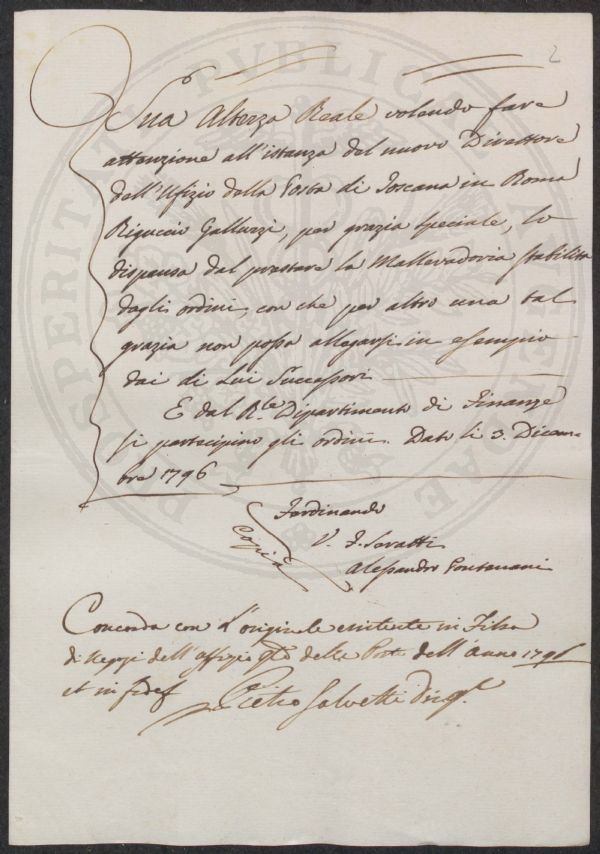 2
Sua Altezza Reale volendo fare
attenzione all'istanza del nuovo Direttore
dell'Ufizio della Posta di Toscana in Roma
Riguccio Galluzzi, per grazia speciale, lo
dispensa dal prestare la Mallevadoria stabilita
dagli ordini, con che per altro una tal
grazia non possa allegarsi in esempio
dai di Lui Successori
E dal R.le Dipartimento di Finanze
si partecipino gli ordini. Dato li 3. Dicem
bre 1796
Ferdinando
V. F. Seratti
Alessandro Pontenani
Copia
Concorda con L'originale esistente in Filza
di Negozi dell'uffizio gle della Posta dell'Anno 1796
et in fidef
Pietro Salvetti
PROSPERITATI PUBLICAE AUGENDAE